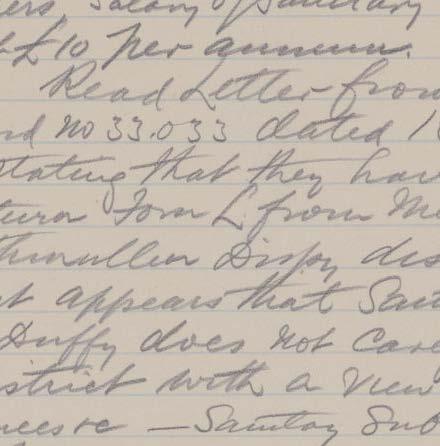 ers, Salary of Sanitary
£10 per annum.
Read Letter from
rd no 33.033 dated 1
stating that they hav
turn Form L from M
thmullen Dispy dis
it appears that San
Duffy does not care
strict with a view
— Sanitary Sub